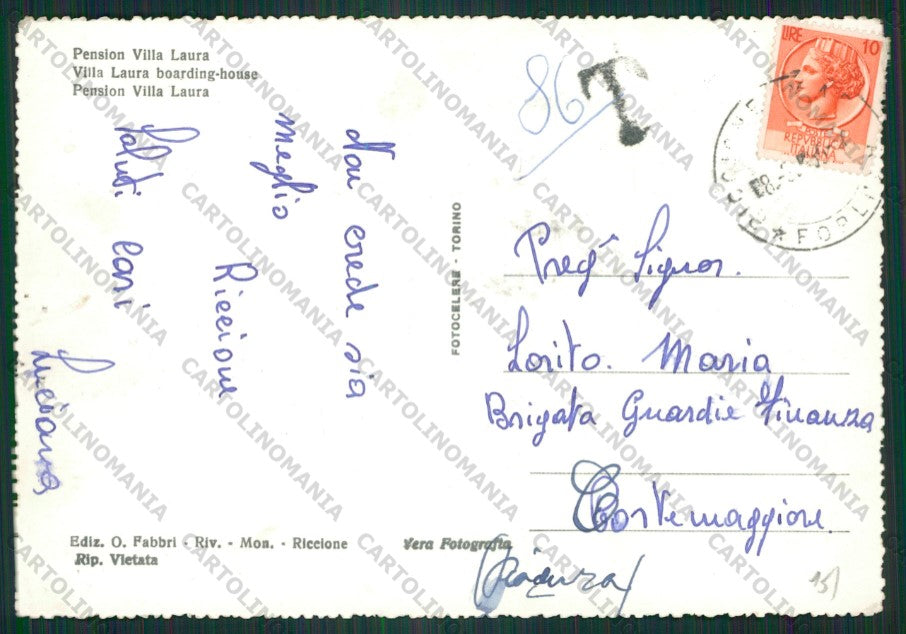 Pension Villa Laura
Villa Laura boarding-house
Pension Villa Laura
Non crede sia
meglio
Riccione
Saluti cari
Luciana
Ediz. O. Fabbri - Riv. - Mon. - Riccione
Rip. Vietata
Vera Fotografia
FOTOCELERE - TORINO
86
T
LIRE 10
REPVBBLICA
ITALIANA
RICCIONE
FORLI
Preg. Signor.
Lorito. Maria
Brigata Guardie Finanza
Cortemaggiore
(Piacenza)
15)
CARTOLINOMANIA